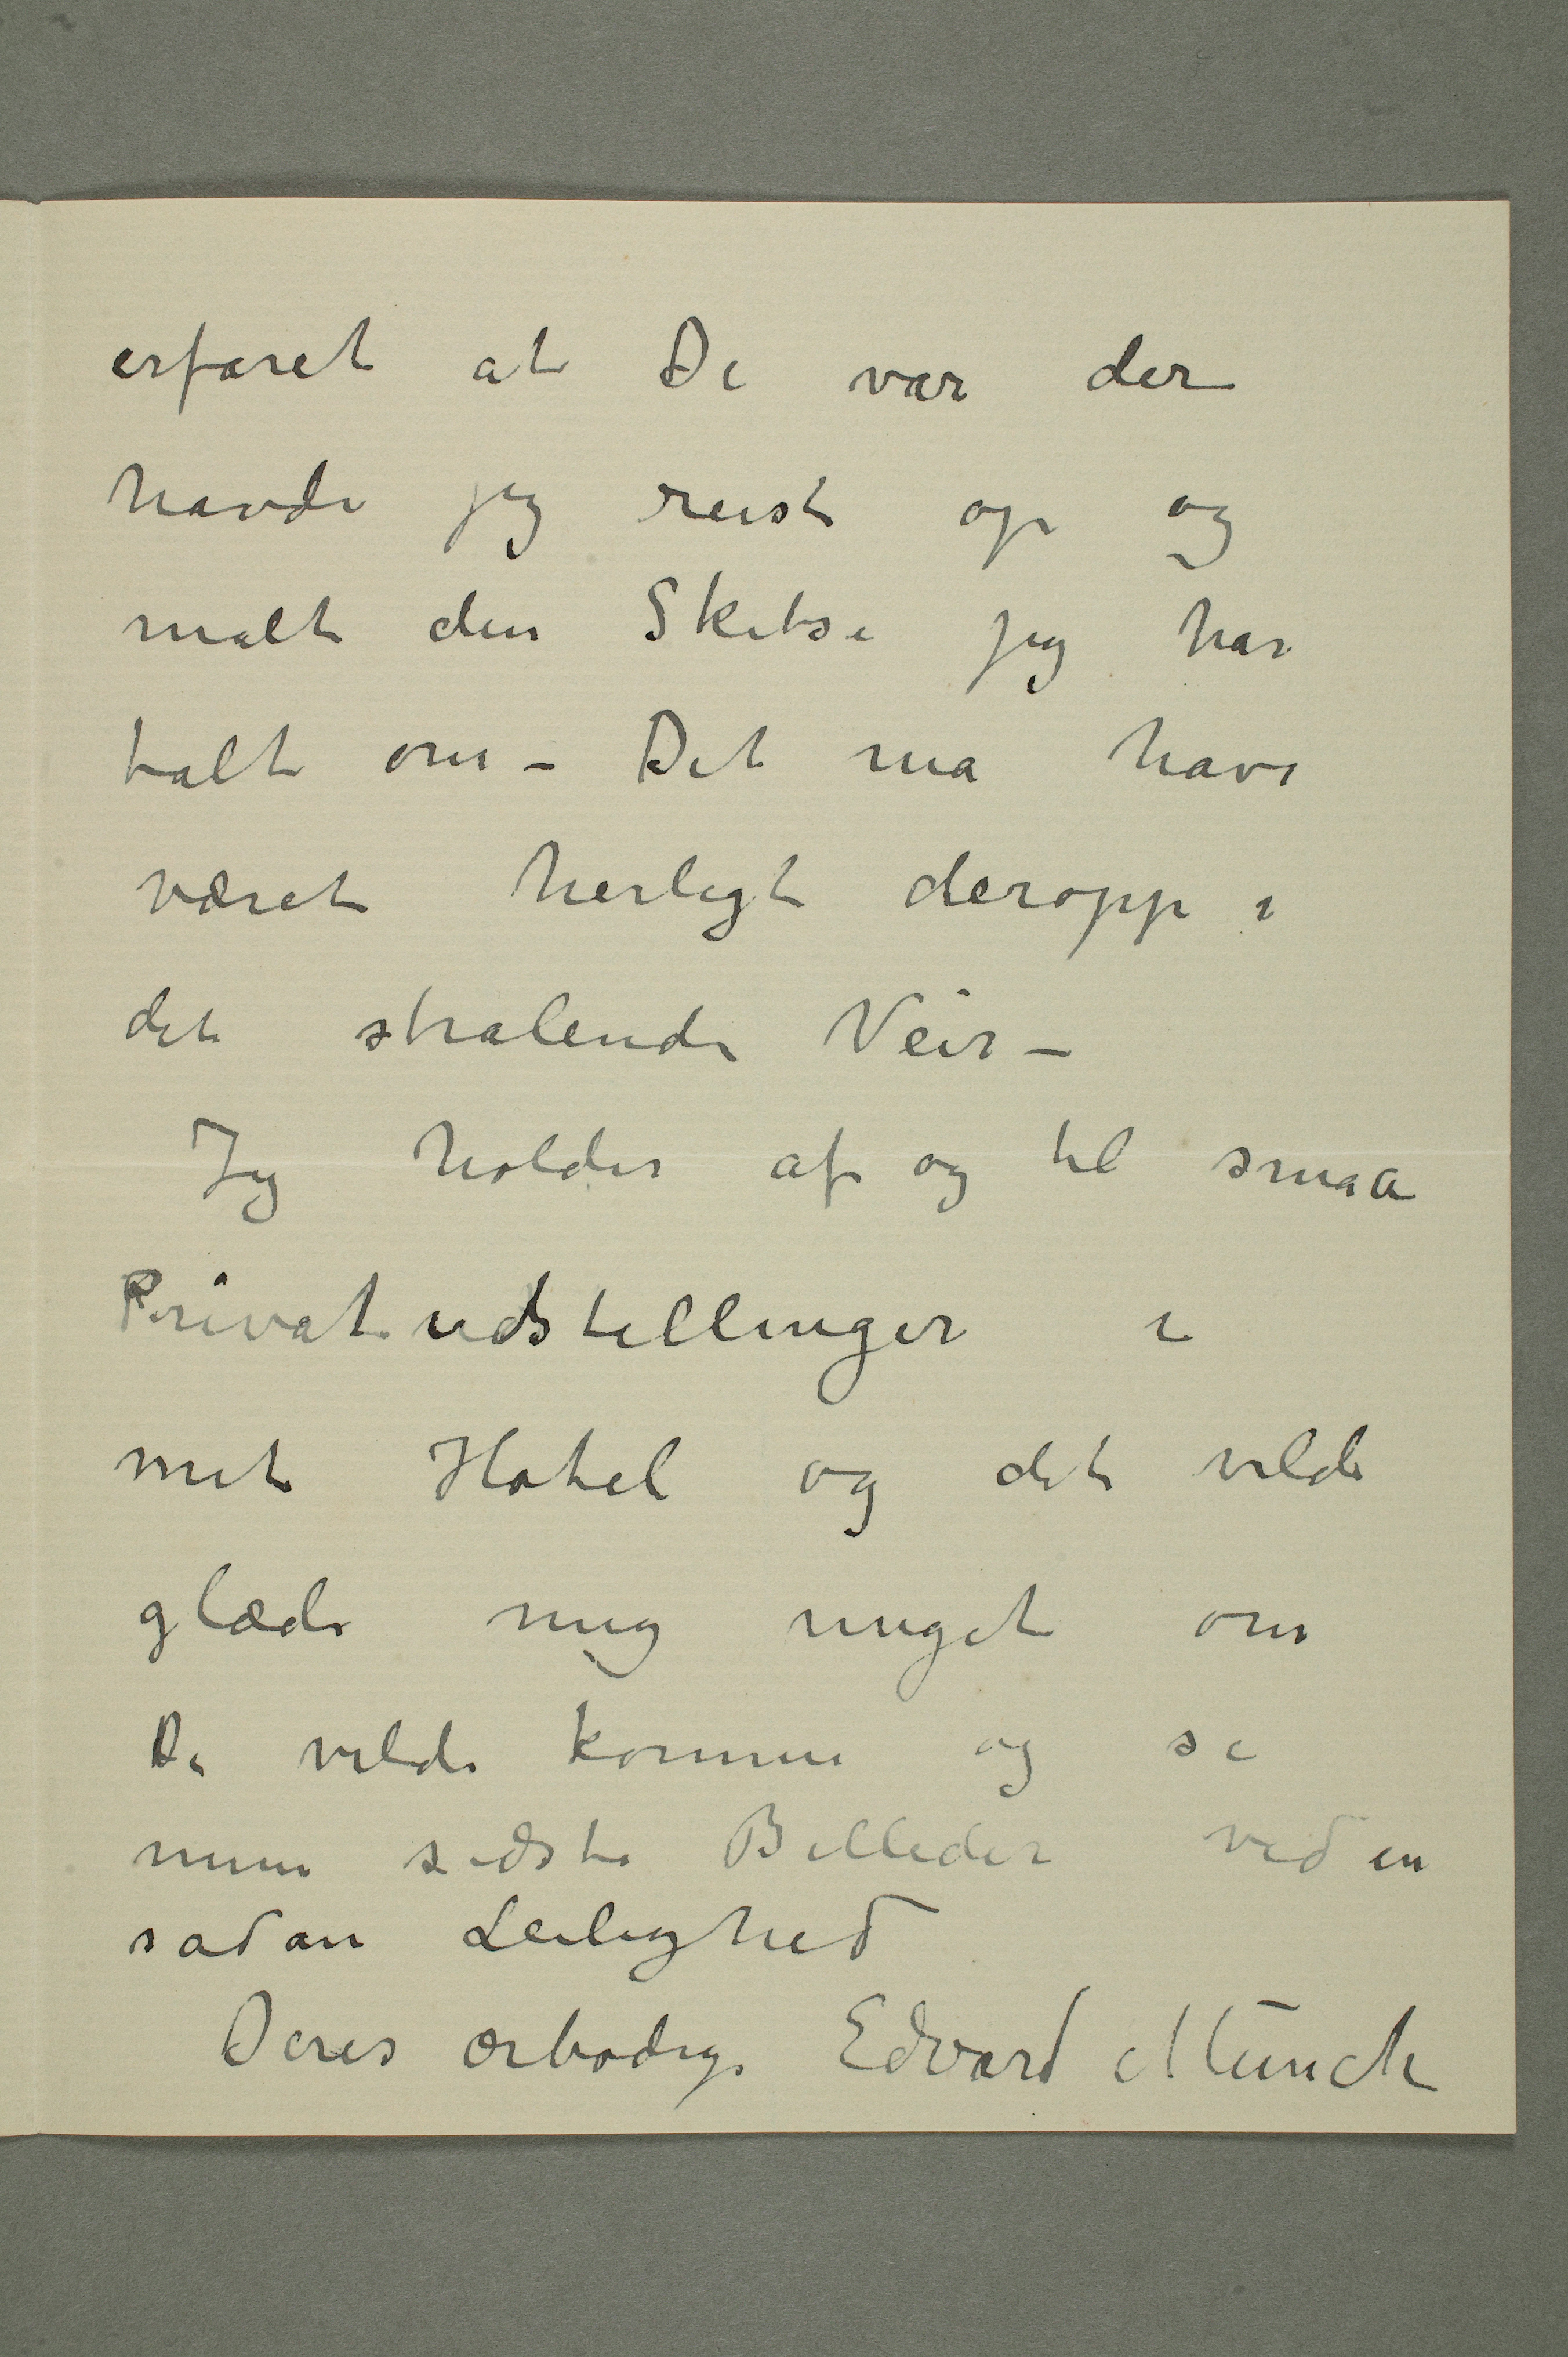 erfaret at De var der
havde jeg reist op og
malt den Skitse jeg har
talt om – Det ma have
været herligt deropp i
det stralende Veir –
Jeg holder af og til smaa
Privatudstillinger i
mit Hotel og det vilde
glæde mig meget om
De vilde komme og se
mine sidste Billeder ved en
sadan Leilighed
Deres ærbødige Edvard Munch